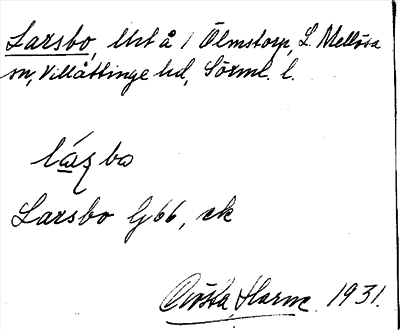 Larsbo, lht å Ölmstorp, L. Mellösa
sn, Villåttinge hd, Sörml. l.
Larsbo G66, ek
Gösta Harm. 1931.